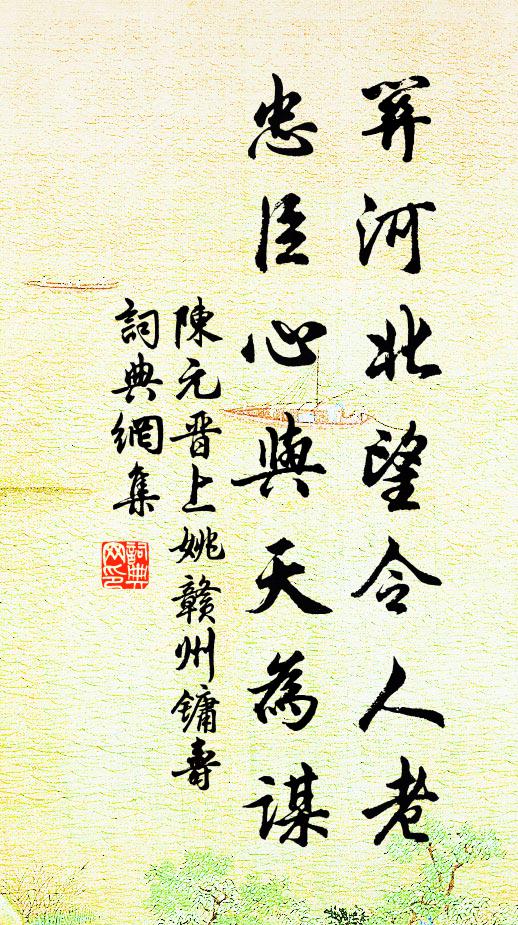 關河北望令人老
忠臣心與天為謀
陳元晉上姚贛州鏞壽
詞典網集
詞典
网印